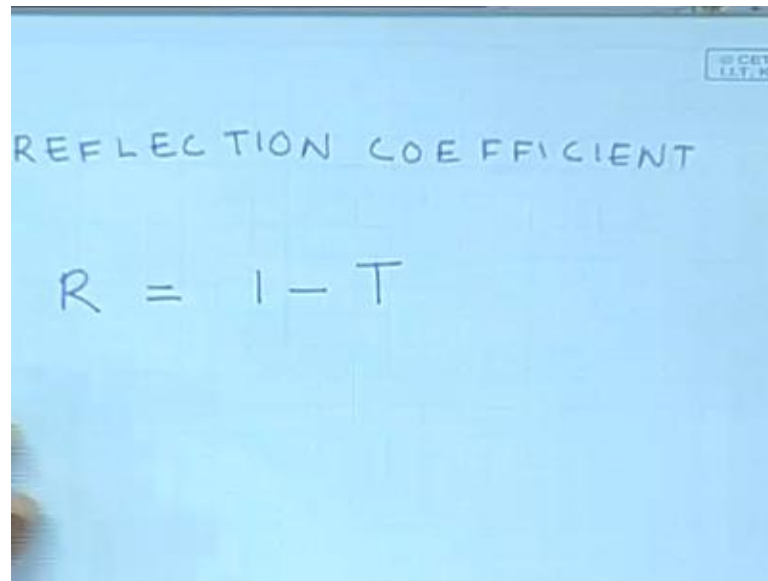 © CET
I.I.T.
REFLECTION COEFFICIENT
R = 1 - T